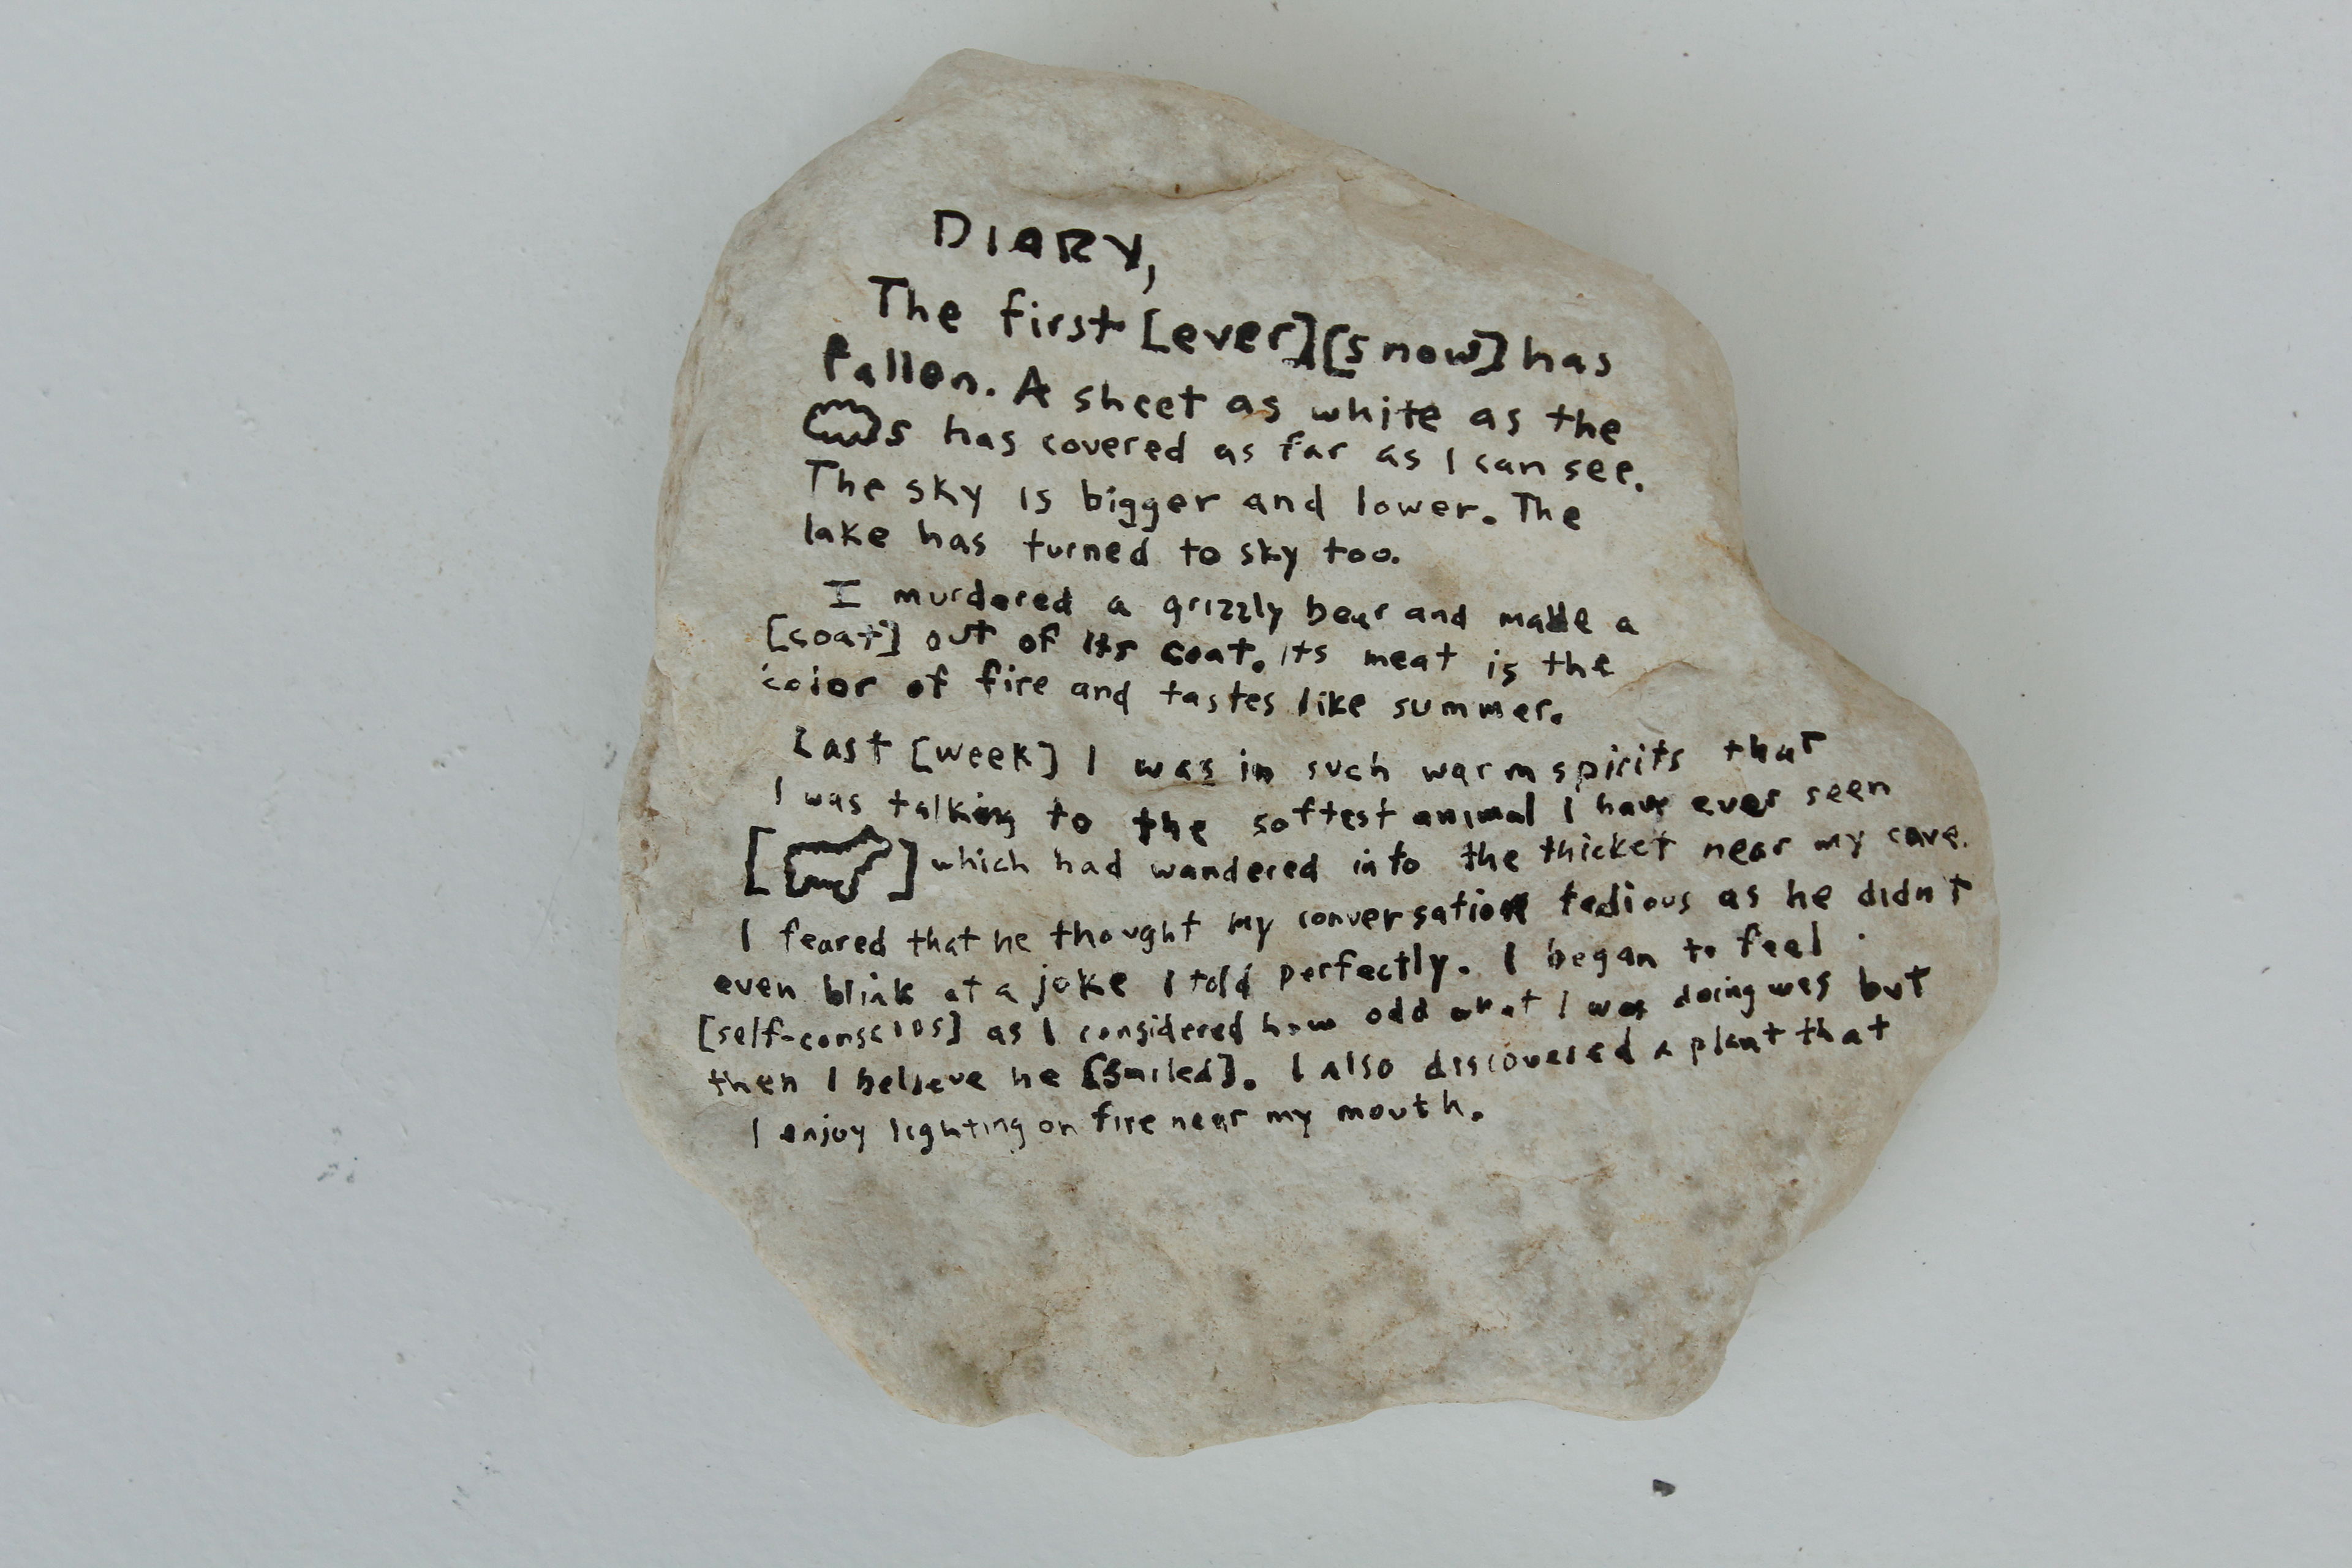 DIARY,
The first [ever][snow] has
fallen. A sheet as white as the
s has covered as far as I can see.
The sky is bigger and lower. The
lake has turned to sky too.
I murdered a grizzly bear and made a
[coat] out of its coat. Its meat is the
color of fire and tastes like summer.
Last [week] I was in such warm spirits that
I was talking to the softest animal I have ever seen
[ ] which had wandered into the thicket near my cave.
I feared that he thought my conversation tedious as he didnt
even blink at a joke I told perfectly. I began to feel
[self-conscios] as I considered how odd what I was doing was but
then I believe he [smiled]. I also discovered a plant that
I enjoy lighting on fire near my mouth.